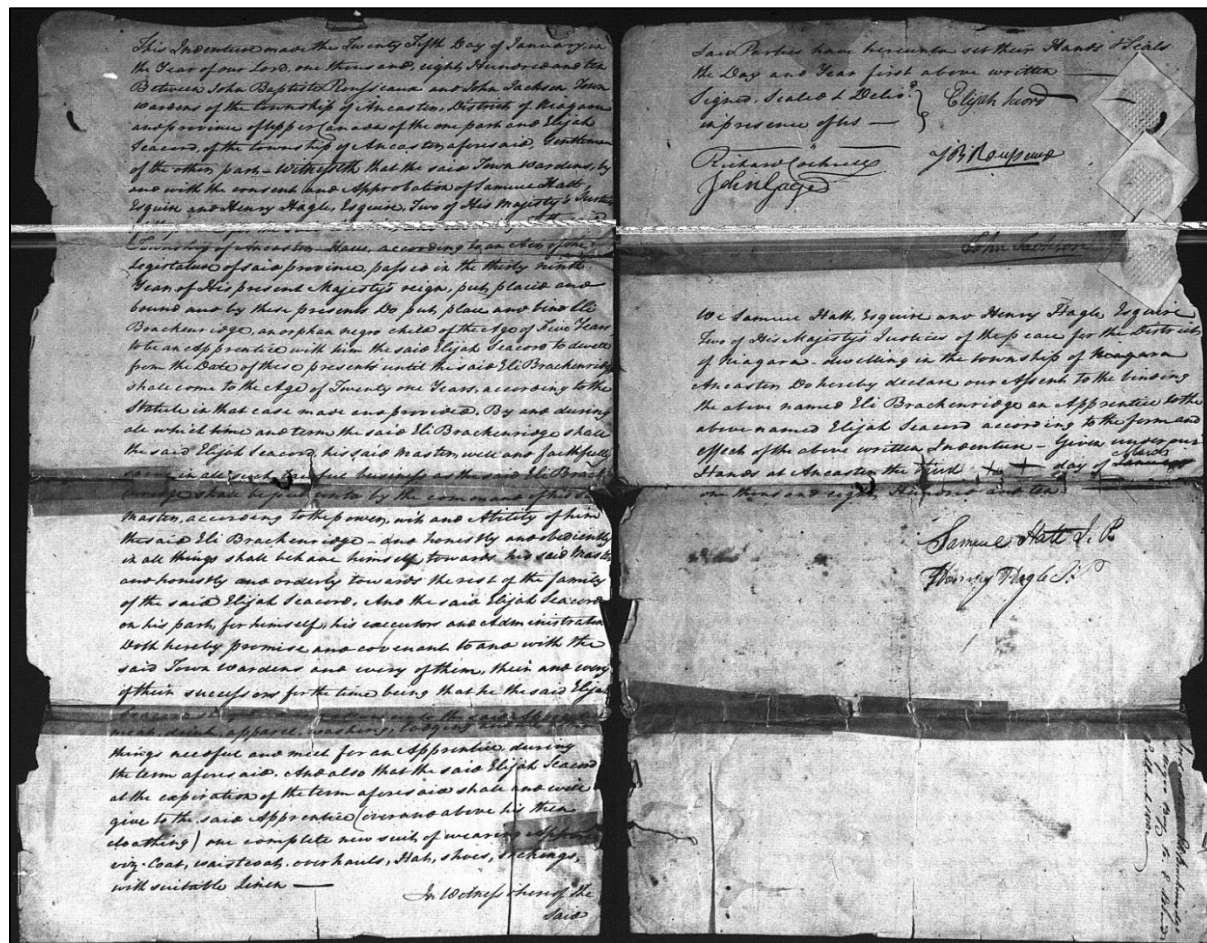 This Indenture made the Twenty Fifth Day of January in
the Year of our Lord, one thousand, eight Hundred and ten
Between John Baptiste Rousseaux and John Jackson Town
wardens of the township of Ancaster, District of Niagara
and province of Upper Canada of the one part and Elijah
Seacord, of the township of Ancaster aforesaid, Gentleman
of the other part – Witnesseth that the said Town Wardens, by
and with the consent and Approbation of Samuel Hatt
Esquire and Henry Hagle, Esquire, Two of His Majesty's Justices
Township of Ancaster – Have, according to an Act of the
Legislature of said province, passed in the thirty ninth
Year of His present Majesty's reign, put, placed and
bound and by these presents Do put, place and bind Eli
Brackenridge, an orphan negro child of the Age of Five Years
to be an Apprentice with him the said Elijah Seacord to dwell
from the Date of these presents until the said Eli Brackenridge
shall come to the Age of Twenty one Years, according to the
Statute in that case made and provided. By and during
all which time and term the said Eli Brackenridge shall
the said Elijah Seacord, his said Master, well and faithfully
in all such business as the said Eli Brack-
enridge shall be put unto by the command of his
Master, according to the power, wit and Ability of him
the said Eli Brackenridge – and honestly and obediently
in all things shall behave himself towards his said Master
and honestly and orderly towards the rest of the family
of the said Elijah Seacord. And the said Elijah Seacord
on his part, for himself, his executors and Administrators
Doth hereby promise and covenant to and with the
said Town Wardens and every of them, their and every
of their successors for the time being that he the said Elijah
Seacord the said Apprentice
meat, drink, apparel, washing, lodging
things needful and meet for an Apprentice during
the term aforesaid. And also that the said Elijah Seacord
at the expiration of the term aforesaid shall and will
give to the said Apprentice (over and above his then
cloathing) one complete new suit of wearing Apparel
viz. Coat, waistcoat, overhauls, Hat, shoes, stockings,
with suitable Linen —
In Witness whereof the
Said
Said Parties have hereunto set their Hands & Seals
the Day and Year first above written —
Signed, Sealed & Deliv.d
in presence of us —
Elijah Secord
Richard Cockrell
J B Rousseaux
John Gages
John Jackson
We Samuel Hatt, Esquire and Henry Hagle, Esquire
Two of His Majesty's Justices of the peace for the District
of Niagara – dwelling in the township of Niagara
Ancaster, Do hereby declare our Assent to the binding
the above named Eli Brackenridge an Apprentice to the
above named Elijah Seacord according to the form and
effect of the above written Indenture – Given under our
Hands at Ancaster the day of March
one thousand eight Hundred and ten
Samuel Hatt J. P.
Henry Hagle J. P